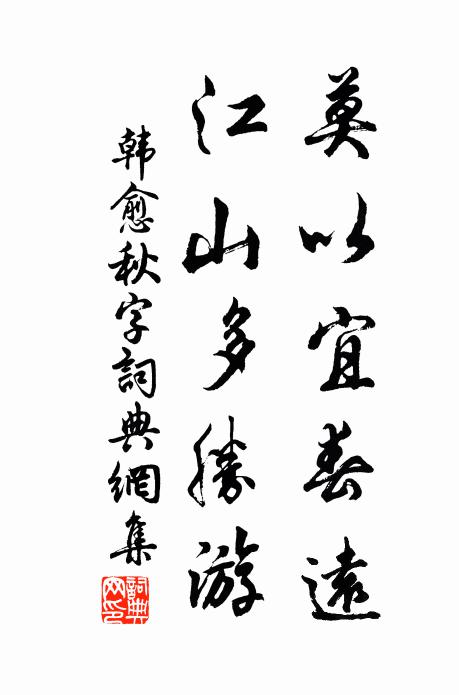 莫以宜春遠
江山多勝游
韩愈秋字詞典網集
詞典網印